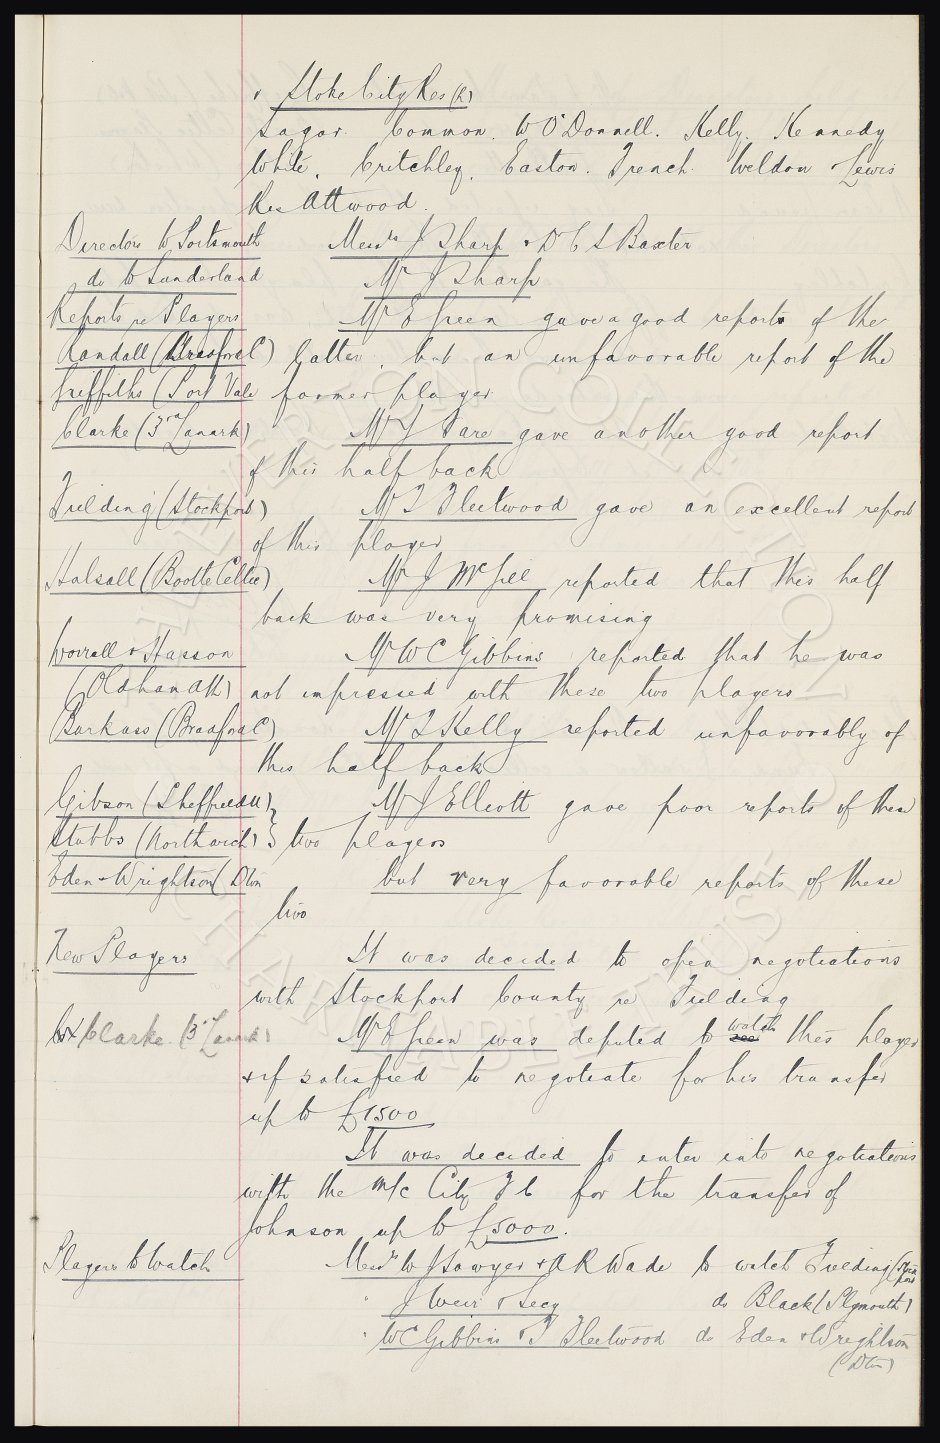 v Stoke City Res (h)
Sagar. Common. W O'Donnell. Kelly. Kennedy
White. Critchley. Easton. French. Weldon & Lewis
Res Attwood.
Directors to Portsmouth Messrs J Sharp & Dr C S Baxter
do to Sunderland Mr J Sharp
Reports re Players Mr E Green gave a good reports of the
Randall (Bradford C) latter, but an unfavorable report of the
Greffiths (Port Vale former player
Clarke (3rd Lanark) Mr J Fare gave another good report
of this half back
Fielding (Stockport) Mr T Fleetwood gave an excellent report
of this player
Halsall (Bootle Celtic) Mr J McGill reported that this half
back was very promising
Worrall & Hasson Mr W C Gibbins reported that he was
(Oldham Ath) not impressed with these two players
Barkass (Bradford C) Mr T Kelly reported unfavorably of
this half back
Gibson (Sheffield U) Mr J Elliott gave poor reports of these
Stubbs (Northwich) two players
Eden & Wrightson (Dton but very favorable reports of these
two
New Players It was decided to open negotiations
with Stockport County re Fielding
Clarke (3rd Lanark) Mr E Green was deputed to see watch this player
& if satisfied to negotiate for his transfer
up to £1500
It was decided to enter into negotiations
with the M/c City F C for the transfer of
Johnson up to £5000.
Players to Watch Messrs W J Sawyer & A R Wade to watch Fielding (Stockport
" J Weir & Secy do Black (Plymouth)
" W C Gibbins & T Fleetwood do Eden & Wrightson
(Dton)
EVERTON COLLECTION
CHARITABLE TRUST